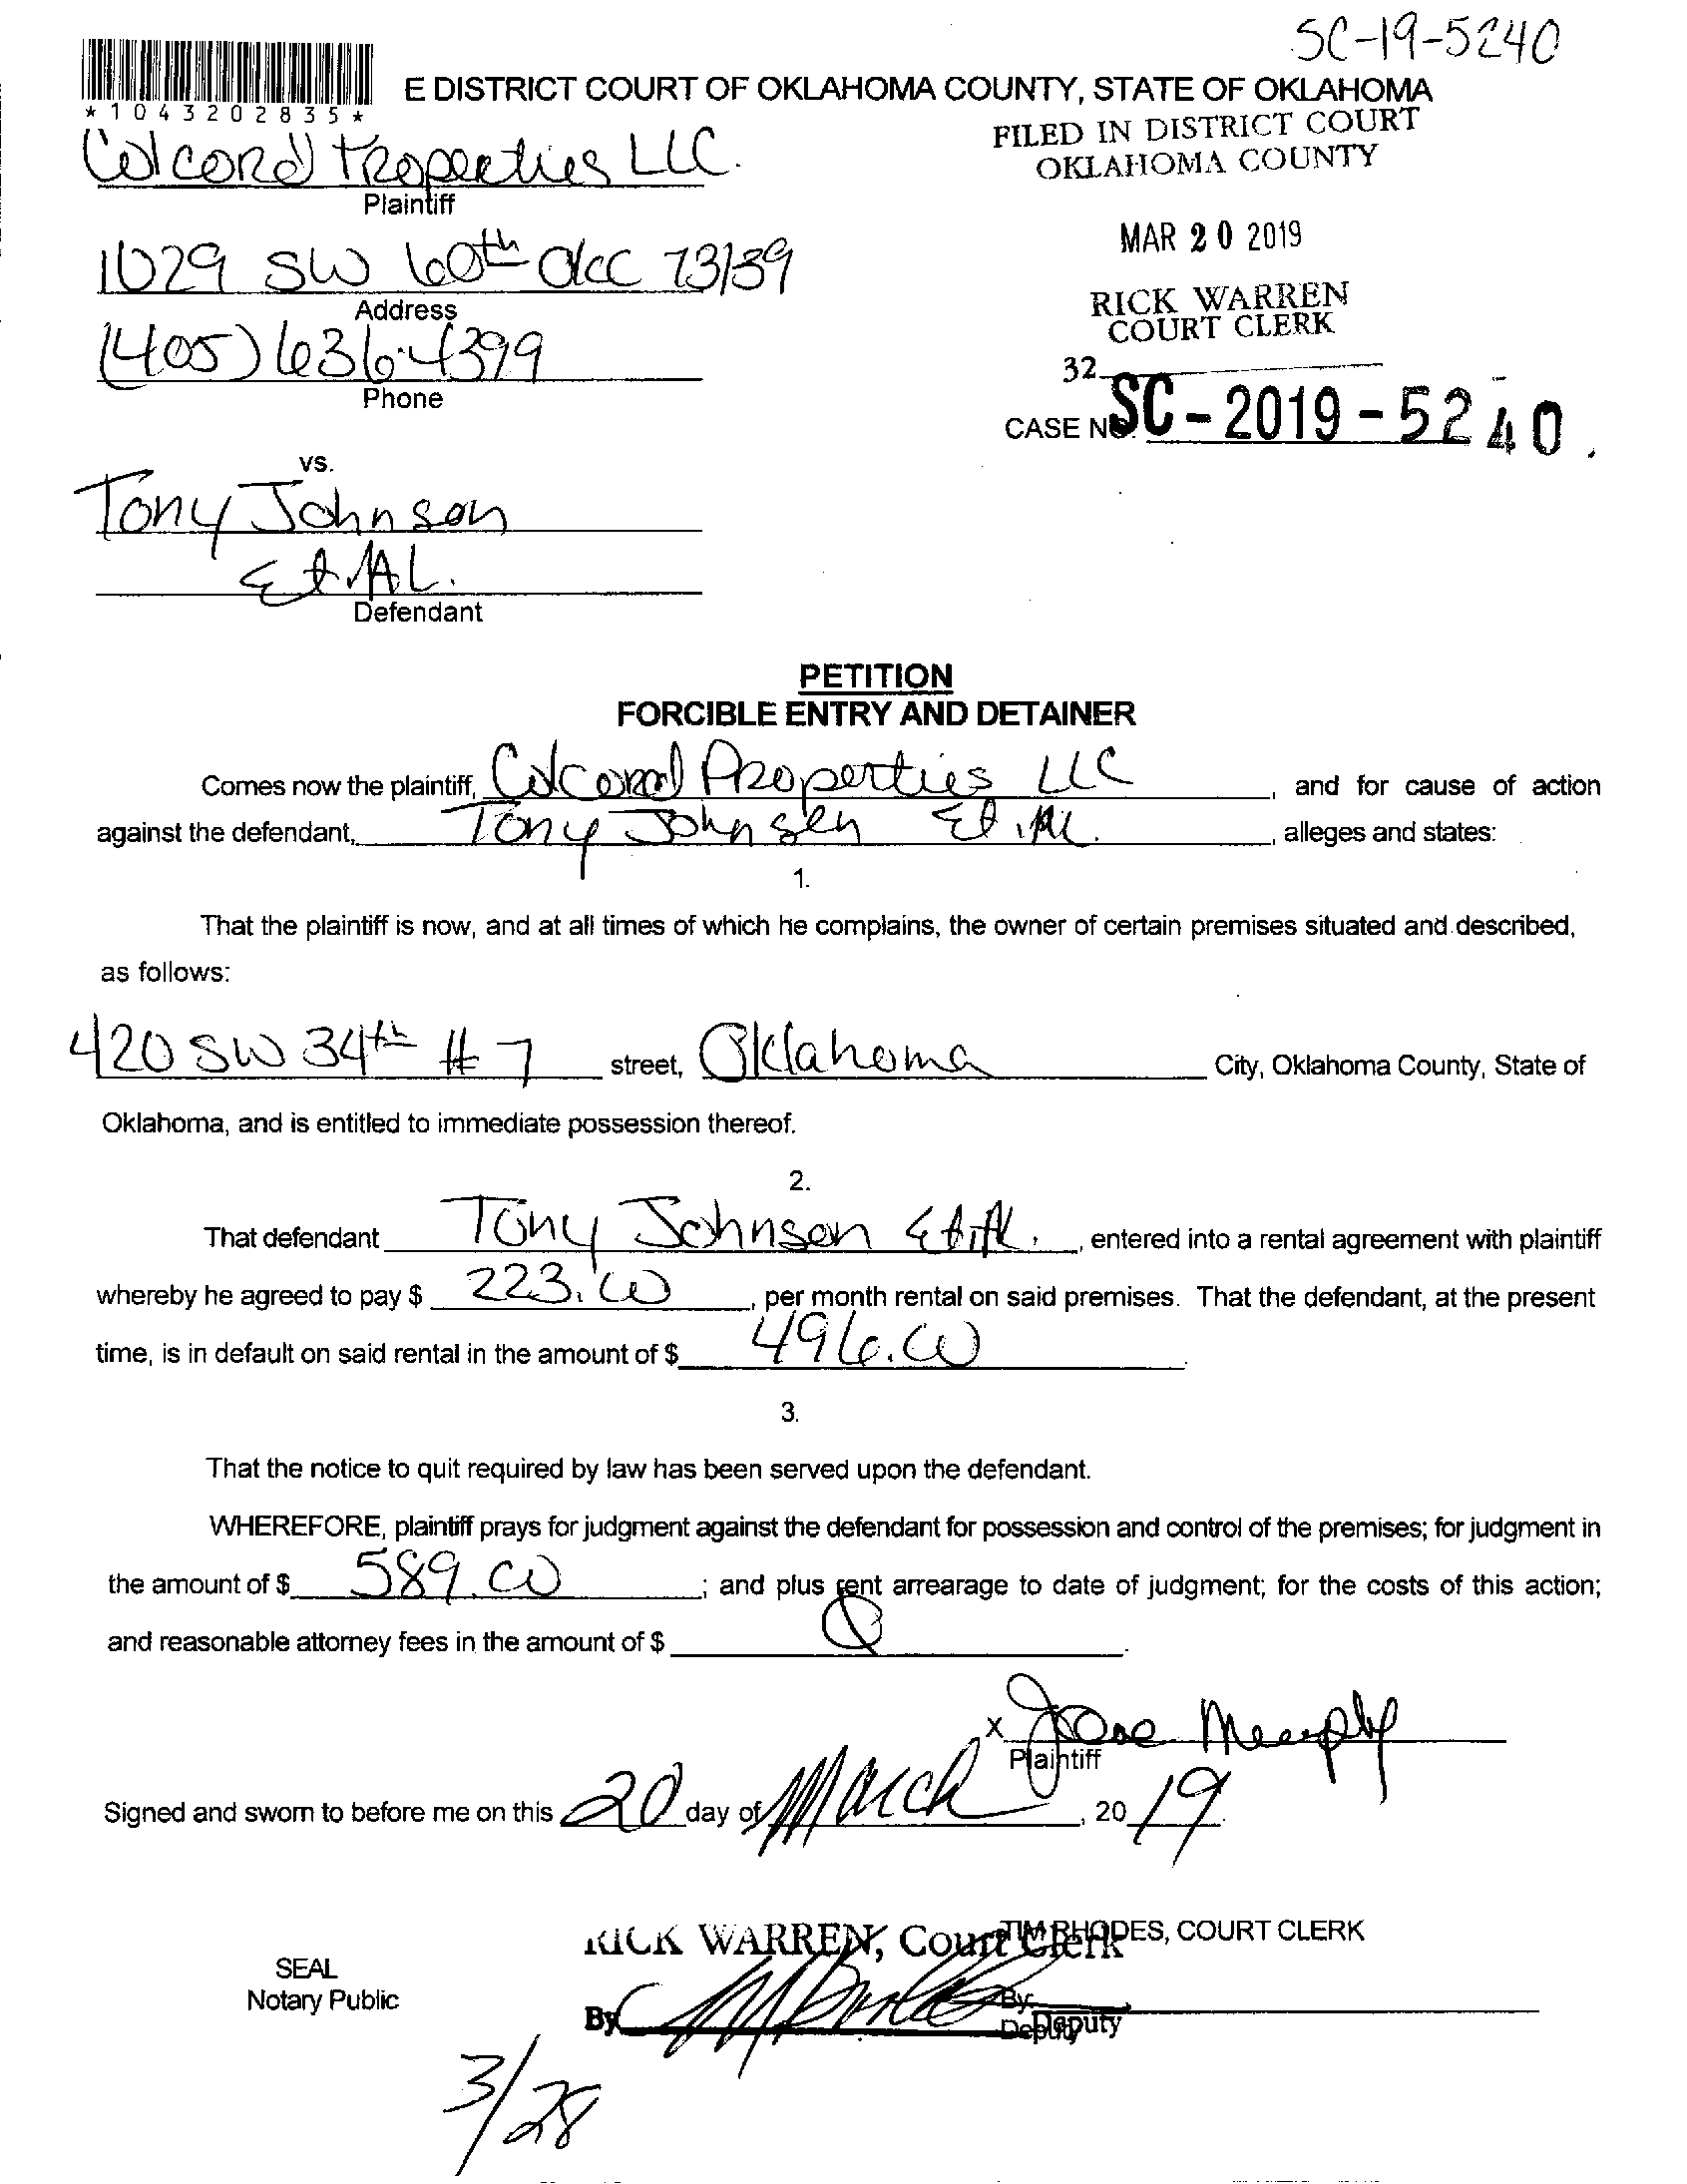 SC-19-5240
E DISTRICT COURT OF OKLAHOMA COUNTY, STATE OF OKLAHOMA
*1043202835*
FILED IN DISTRICT COURT
OKLAHOMA COUNTY
Colcord Properties LLC.
Plaintiff
MAR 20 2019
1029 SW 60th OKC 73139
Address
RICK WARREN
COURT CLERK
(405) 636-4399
Phone
32
CASE NO. SC-2019-5240.
vs.
Tony Johnson
Et. AL.
Defendant
PETITION
FORCIBLE ENTRY AND DETAINER
Comes now the plaintiff, Colcord Properties LLC, and for cause of action
against the defendant, Tony Johnson Et. AL., alleges and states:
1.
That the plaintiff is now, and at all times of which he complains, the owner of certain premises situated and described,
as follows:
420 SW 34th # 7 street, Oklahoma City, Oklahoma County, State of
Oklahoma, and is entitled to immediate possession thereof.
2.
That defendant Tony Johnson Et. Al., entered into a rental agreement with plaintiff
whereby he agreed to pay $ 223.00, per month rental on said premises. That the defendant, at the present
time, is in default on said rental in the amount of $ 496.00.
3.
That the notice to quit required by law has been served upon the defendant.
WHEREFORE, plaintiff prays for judgment against the defendant for possession and control of the premises; for judgment in
the amount of $ 589.00; and plus rent arrearage to date of judgment; for the costs of this action;
and reasonable attorney fees in the amount of $ 0.
x Jose Murphy
Plaintiff
Signed and sworn to before me on this 20 day of March, 20 19.
RICK WARREN, Court Clerk
TIM RHODES, COURT CLERK
SEAL
Notary Public
By
By:
Deputy
Deputy
3/28